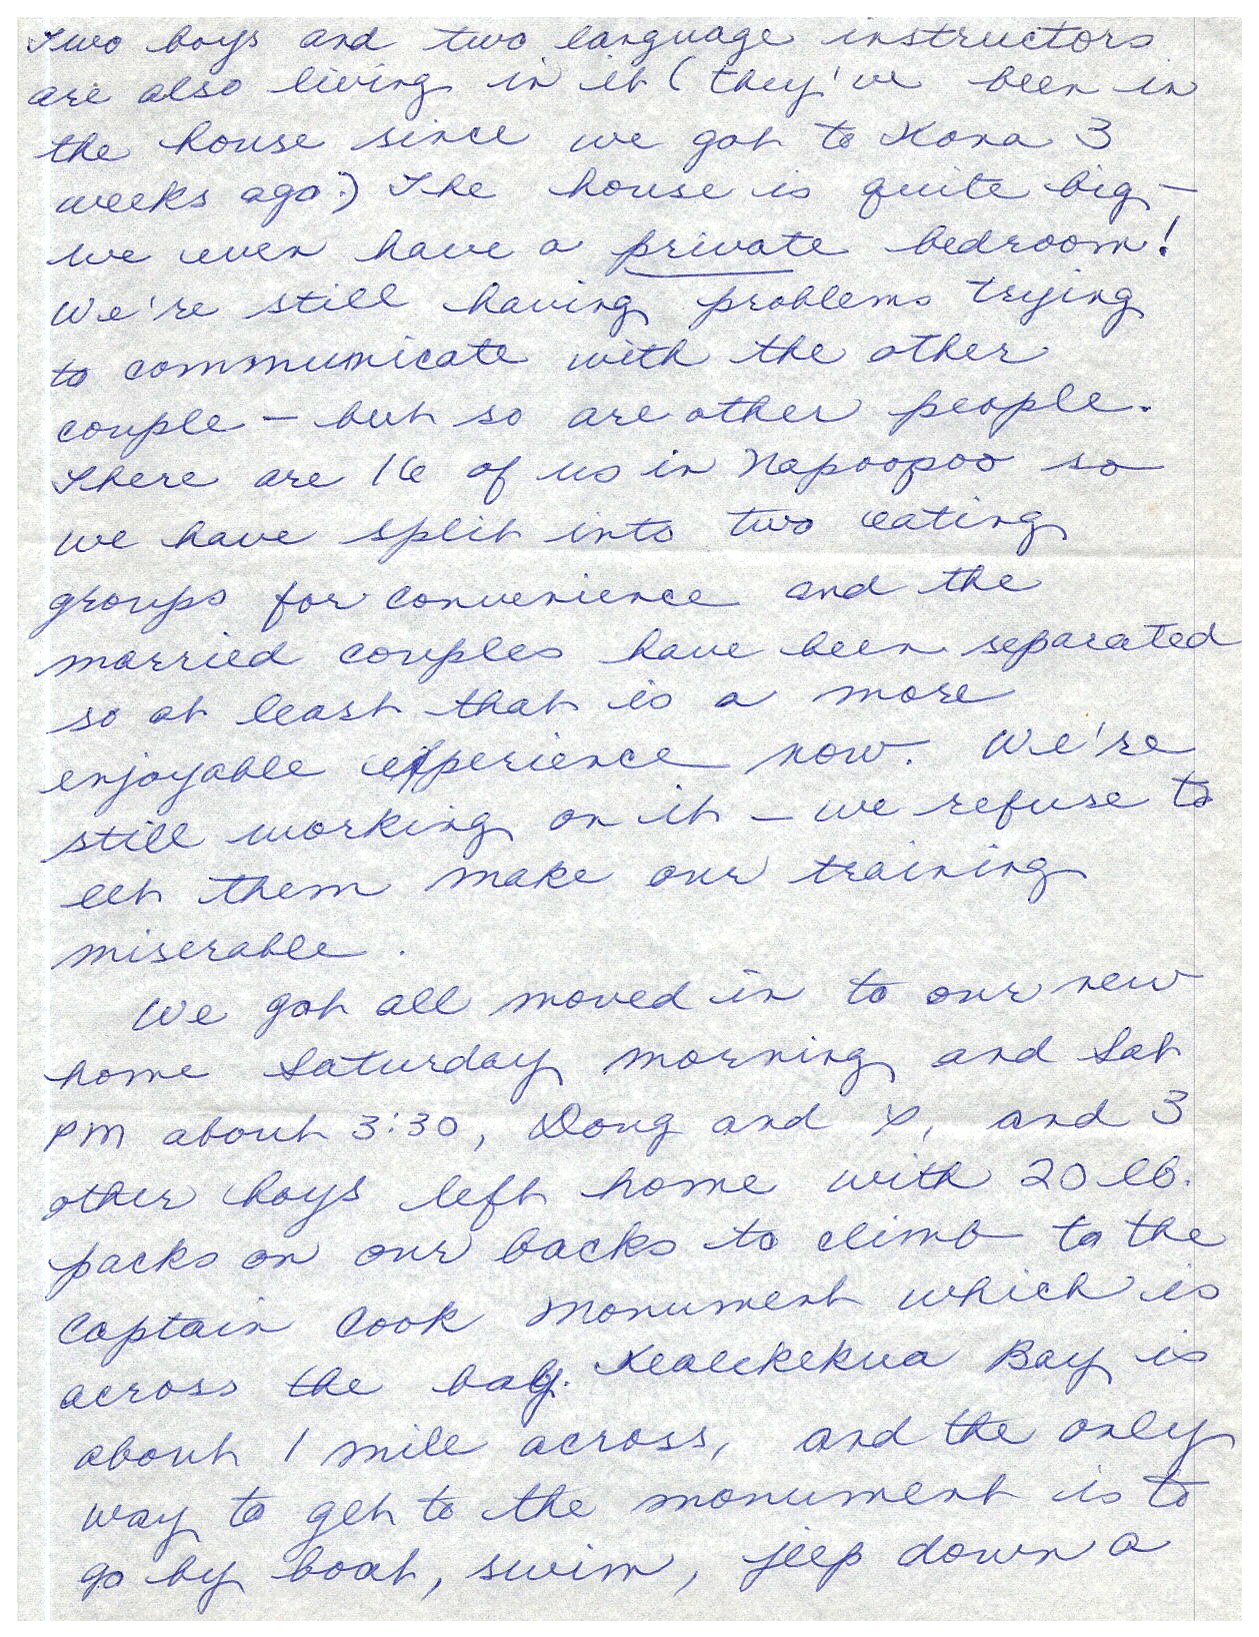 Two boys and two language instructors
are also living in it (they've been in
the house since we got to Kona 3
weeks ago.) The house is quite big –
we even have a private bedroom!
We're still having problems trying
to communicate with the other
couple – but so are other people.
There are 16 of us in Napoopoo so
we have split into two eating
groups for convenience and the
married couples have been separated
so at least that is a more
enjoyable experience now. We're
still working on it – we refuse to
let them make our training
miserable.
We got all moved in to our new
home Saturday morning and Sat
PM about 3:30, Doug and I, and 3
other boys left home with 20 lb.
packs on our backs to climb to the
Captain Cook Monument which is
across the bay. Kealekekua Bay is
about 1 mile across, and the only
way to get to the monument is to
go by boat, swim, jeep down a